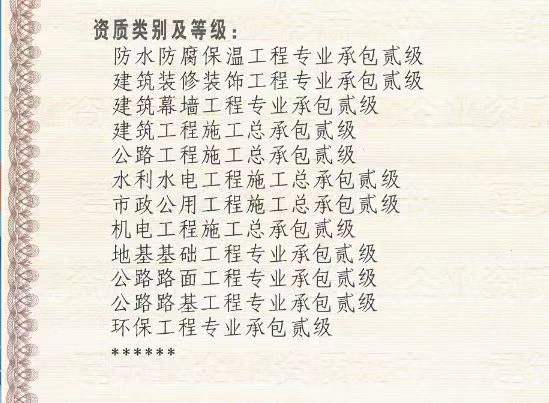 资质类别及等级：
防水防腐保温工程专业承包贰级
建筑装修装饰工程专业承包贰级
建筑幕墙工程专业承包贰级
建筑工程施工总承包贰级
公路工程施工总承包贰级
水利水电工程施工总承包贰级
市政公用工程施工总承包贰级
机电工程施工总承包贰级
地基基础工程专业承包贰级
公路路面工程专业承包贰级
公路路基工程专业承包贰级
环保工程专业承包贰级
******